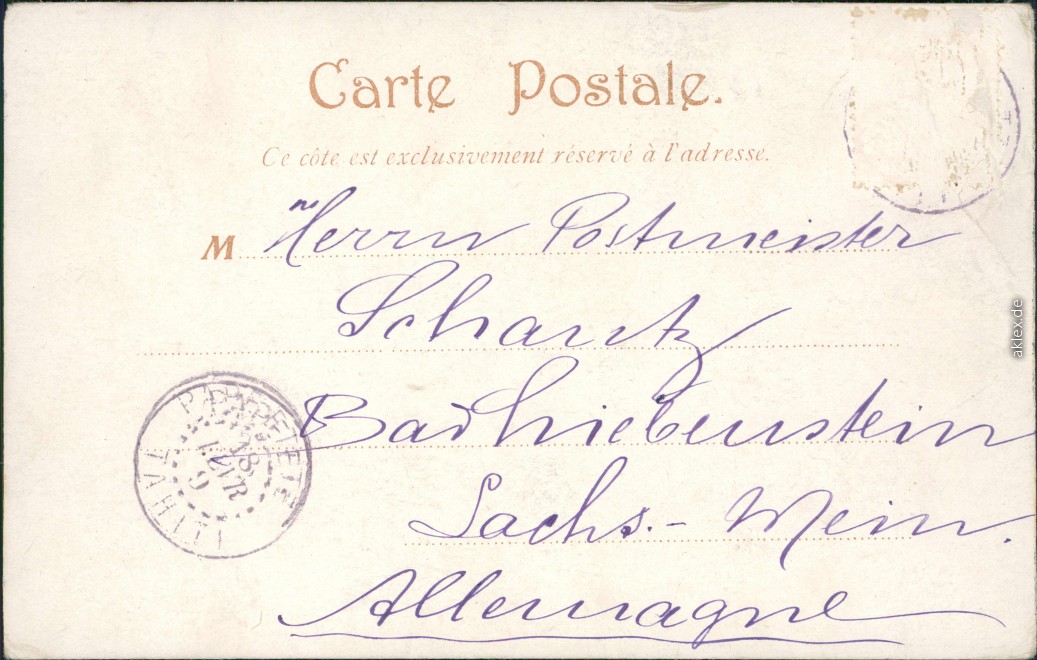 Carte Postale.
Ce côte est exclusivement réservé à l'adresse.
M Herrn Postmeister
Schantz
Bad Liebenstein
Sachs. - Mein.
Allemagne
18
FEVR
aklex.de